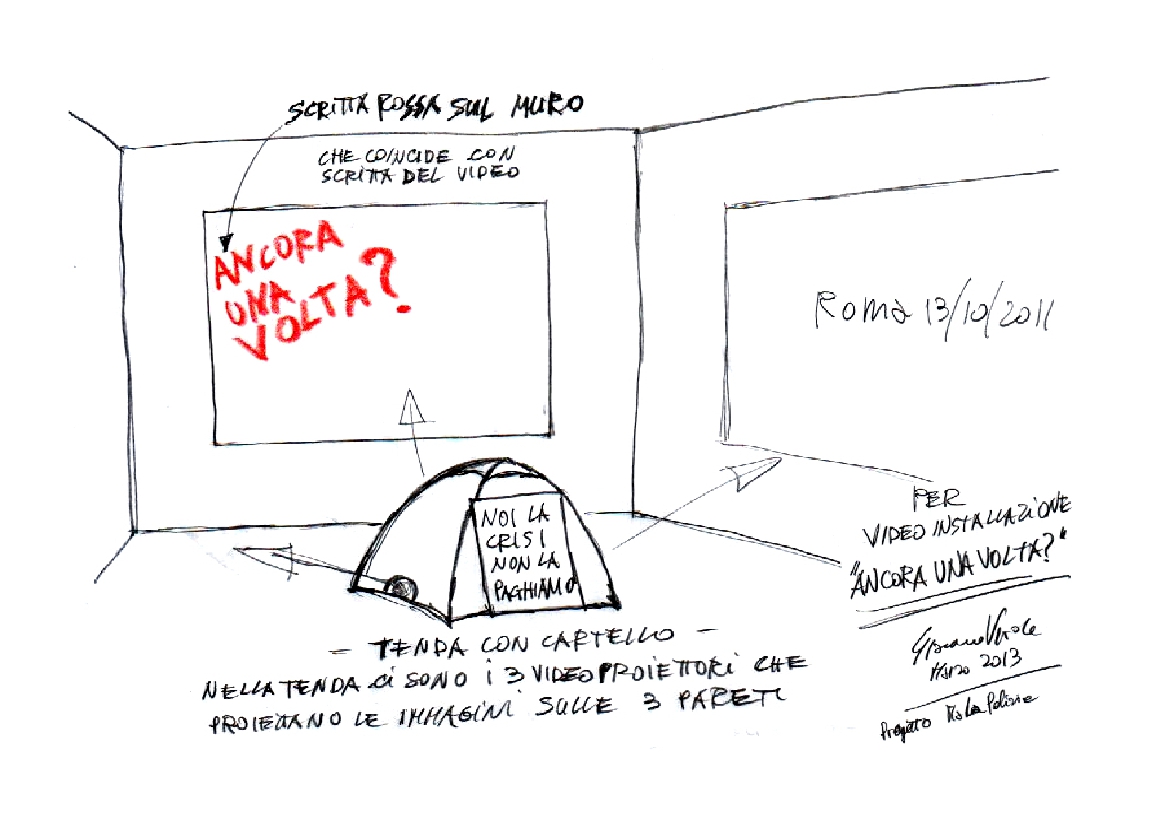 SCRITTA ROSSA SUL MURO
CHE COINCIDE CON
SCRITTA DEL VIDEO
ANCORA
UNA
VOLTA?
Roma 13/10/2011
NOI LA
CRISI
NON LA
PAGHIAMO
PER
VIDEO INSTALLAZIONE
"ANCORA UNA VOLTA?"
Marzo 2013
Progetto
- TENDA CON CARTELLO -
NELLA TENDA CI SONO I 3 VIDEOPROIETTORI CHE
PROIETTANO LE IMMAGINI SULLE 3 PARETI